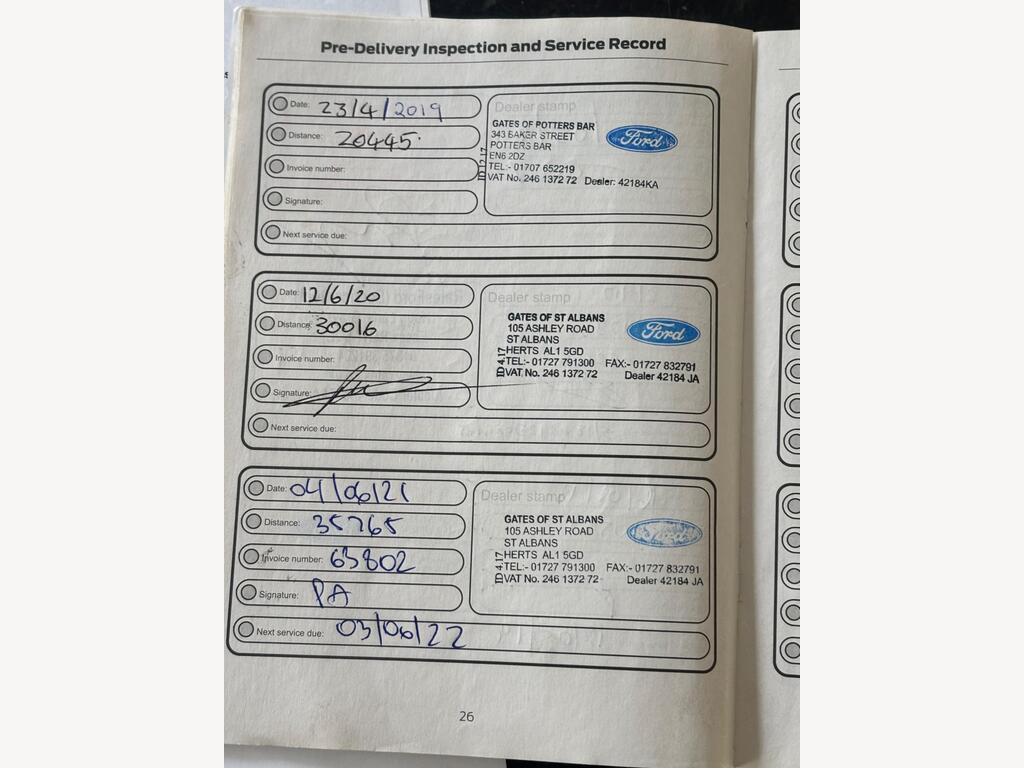 Pre-Delivery Inspection and Service Record
Date: 23/4/2019
Distance: 20445
Invoice number:
Signature:
Next service due:
Dealer stamp
GATES OF POTTERS BAR
343 BAKER STREET
POTTERS BAR
EN6 2DZ
TEL:- 01707 652219
VAT No. 246 1372 72 Dealer: 42184KA
ID 12.17
Ford
Date: 12/6/20
Distance: 30016
Invoice number:
Signature:
Next service due:
Dealer stamp
GATES OF ST ALBANS
105 ASHLEY ROAD
ST ALBANS
HERTS AL1 5GD
TEL:- 01727 791300 FAX:- 01727 832791
VAT No. 246 1372 72 Dealer 42184 JA
ID 4.17
Ford
Date: 04/06/21
Distance: 35765
Invoice number: 63802
Signature: PA
Next service due: 03/06/22
Dealer stamp
GATES OF ST ALBANS
105 ASHLEY ROAD
ST ALBANS
HERTS AL1 5GD
TEL:- 01727 791300 FAX:- 01727 832791
VAT No. 246 1372 72 Dealer 42184 JA
ID 4.17
Ford
26